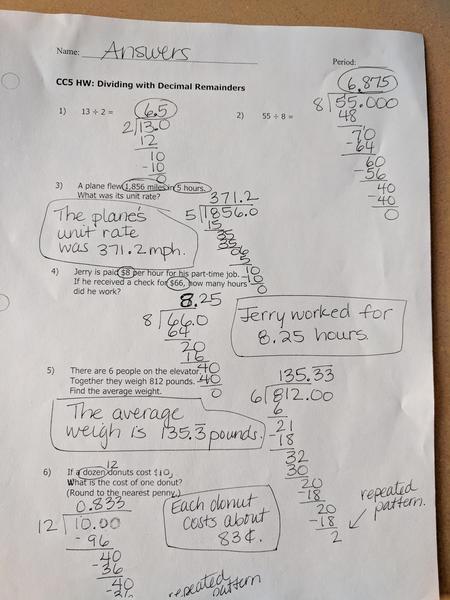 Name: Answers
Period:
CC5 HW: Dividing with Decimal Remainders
1) 13 ÷ 2 = 6.5
2 13.0
12
10
-10
0
2) 55 ÷ 8 = 6.875
8 55.000
48
70
-64
60
-56
40
-40
0
3) A plane flew 1,856 miles in 5 hours.
What was its unit rate?
371.2
5 1856.0
15
10
-10
0
The plane's
unit rate
was 371.2 mph.
4) Jerry is paid $8 per hour for his part-time job.
If he received a check for $66, how many hours
did he work?
8.25
8 66.0
64
20
16
40
40
0
Jerry worked for
8.25 hours.
5) There are 6 people on the elevator.
Together they weigh 812 pounds.
Find the average weight.
135.33
6 812.00
6
-21
-18
32
30
20
-18
20
-18
2
repeated
pattern.
The average
weigh is 135.3̅ pounds.
6) If a dozen donuts cost $10,
12
What is the cost of one donut?
(Round to the nearest penny.)
0.833
12 10.00
-96
40
-36
40
Each donut
costs about
83¢.
repeated
pattern